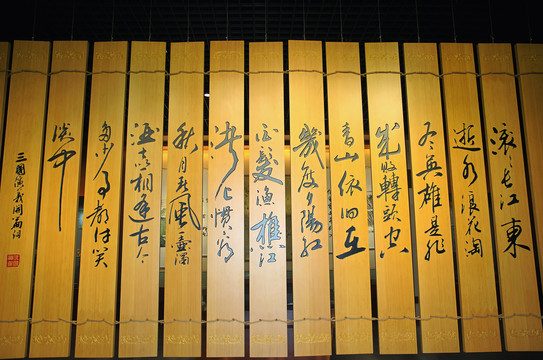 滚〻长江東
逝水浪花淘
尽英雄是非
成败轉头空
青山依旧在
幾度夕陽红
白髮漁樵江
渚上惯看
秋月春風一壶濁
酒喜相逢古今
多少事都付笑
谈中
三國演義開篇词